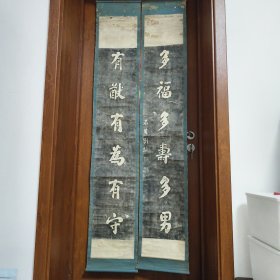 多福多壽多男
有猷有為有守